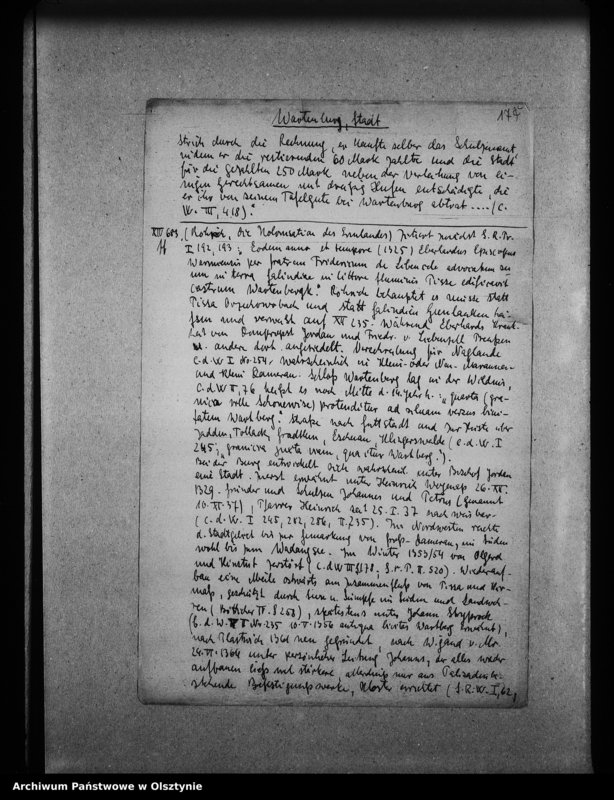 Wartenburg, Stadt
179
strich durch die Rechnung, er kaufte selber das Schulzenamt
indem er die restierenden 60 Mark zahlte und die Stadt
für die gezahlten 250 Mark neben der Verleihung von ei-
nigen Gerechtsamen mit dreißig Hufen entschädigte, die
er ihr von seinem Tafelgute bei Wartenberg abtrat .... (C.
W. III, 418).
XIII 603 (Röhrich, Die Kolonisation des Ermlandes) zitiert zunächst S.R.Pr.
ff I 192, 193: Eodem anno et tempore (1325) Eberhardus Episcopus
Warmiensis per fratrem Fredericum de Libencele advocatum su
um in terra Galindiae in littore fluminis Pisse edificavit
castrum Wartenbergk. Röhrich behauptet es müsse statt
Pissa und statt Galindien Gunlauken hei-
ßen und verweist auf XII 235. Während Eberhards Krank-
heit von Dompropst Jordan und Friedr. v. Liebenzell Preußen
u. andere dort angesiedelt. Verschreibung für Naglande
C.d.W I No. 254, wahrscheinlich in Klein- oder Neu-
und Klein Ramerau. Schloß Wartenberg lag in der Wildnis,
C.d.W II, 76 heißt es noch Mitte d. 14. Jahrh.: quarta (gra-
nica ville Schonewise) protenditur ad silvam versus civi-
tatem Wartberg. Straße nach Guttstadt und zur Küste über
Jadden, Tollack, Fleming, Eschenau, Kleegerswalde (C.d.W. I
245; granicia juxta viam, qua itur Wartberg.).
Bei der Burg entwickelt sich wahrscheinl. unter Bischof Jordan
eine Stadt. Zuerst erwähnt unter Heinrich Wogenap 26. XII.
1329. Gründer und Schulzen Johannes und Petrus (genannt
10. XII. 37), Pfarrer Heinrich seit 25. I. 37 nachweisbar
(C.d.W. I 245, 282, 286, II. 235). Im Nordwesten reichte
d. Stadtgebiet bis zur Gemarkung von Groß-Rameren, im Süden
wohl bis zum Wadangsee. Im Winter 1353/54 von Olgerd
und Kinstut zerstört (C.d.W III S. 178, S.r.P. II. 520). Wiederauf-
bau eine Meile ostwärts am Zusammenfluß von Pissa und Kir-
maß, geschützt durch Seen u. Sümpfe im Süden und Landweh-
ren (Bötticher IV S 263), spätestens unter Johann Stryprock
(C.d.W. II No. 235 10. V. 1356 antiqua civitas Wartberg erwähnt),
nach Plastwich 1364 neu gegründet, nach Wigand v. Mr.
24. VI. 1364 unter persönlicher Leitung Johanns, der alles wieder
aufbauen ließ und stärkere, allerdings nur aus Palisaden be-
stehende Befestigungswerke, Kloster errichtet (S.R.W. I, 62,
Archiwum Państwowe w Olsztynie